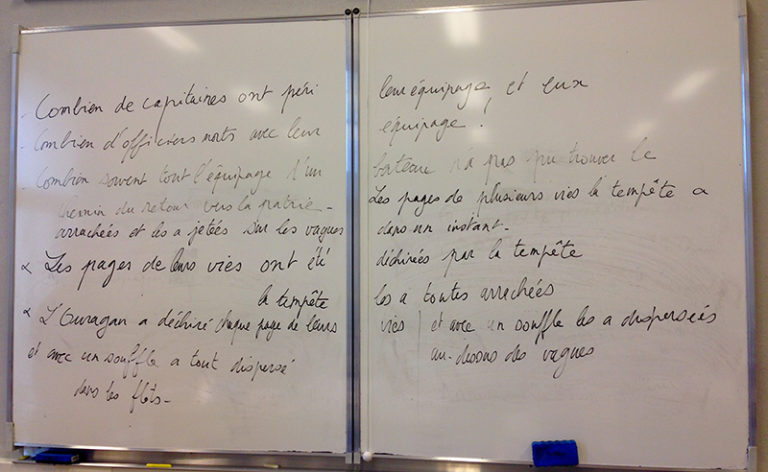 - Combien de capitaines ont péri leur équipage, et eux
- Combien d'officiers morts avec leur équipage !
- Combien souvent tout l'équipage d'un bateau n'a pas pu trouver le
chemin du retour vers la patrie - Les pages de plusieurs vies la tempête a
arrachées et les a jetées sur les vagues dans un instant.
Les pages de leurs vies ont été déchirées par la tempête
la tempête les a toutes arrachées
L'Ouragan a déchiré chaque page de leurs vies et avec un souffle les a dispersées
et avec un souffle a tout dispersé au-dessus des vagues
dans les flots -